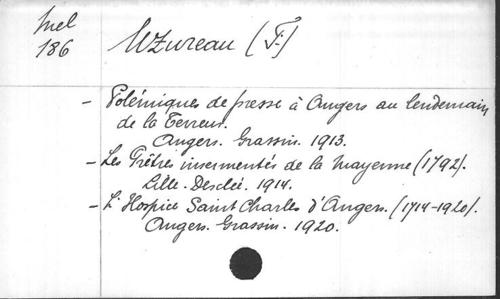 Mel
186
Uzureau (F.)
- Polémiques de presse à Angers au lendemain
de la Terreur.
Angers. Grassin. 1913.
- Les Prêtres insermentés de la Mayenne (1792).
Lille. Desclée. 1914.
- L'Hospice Saint Charles d'Angers. (1714-1920).
Angers. Grassin. 1920.